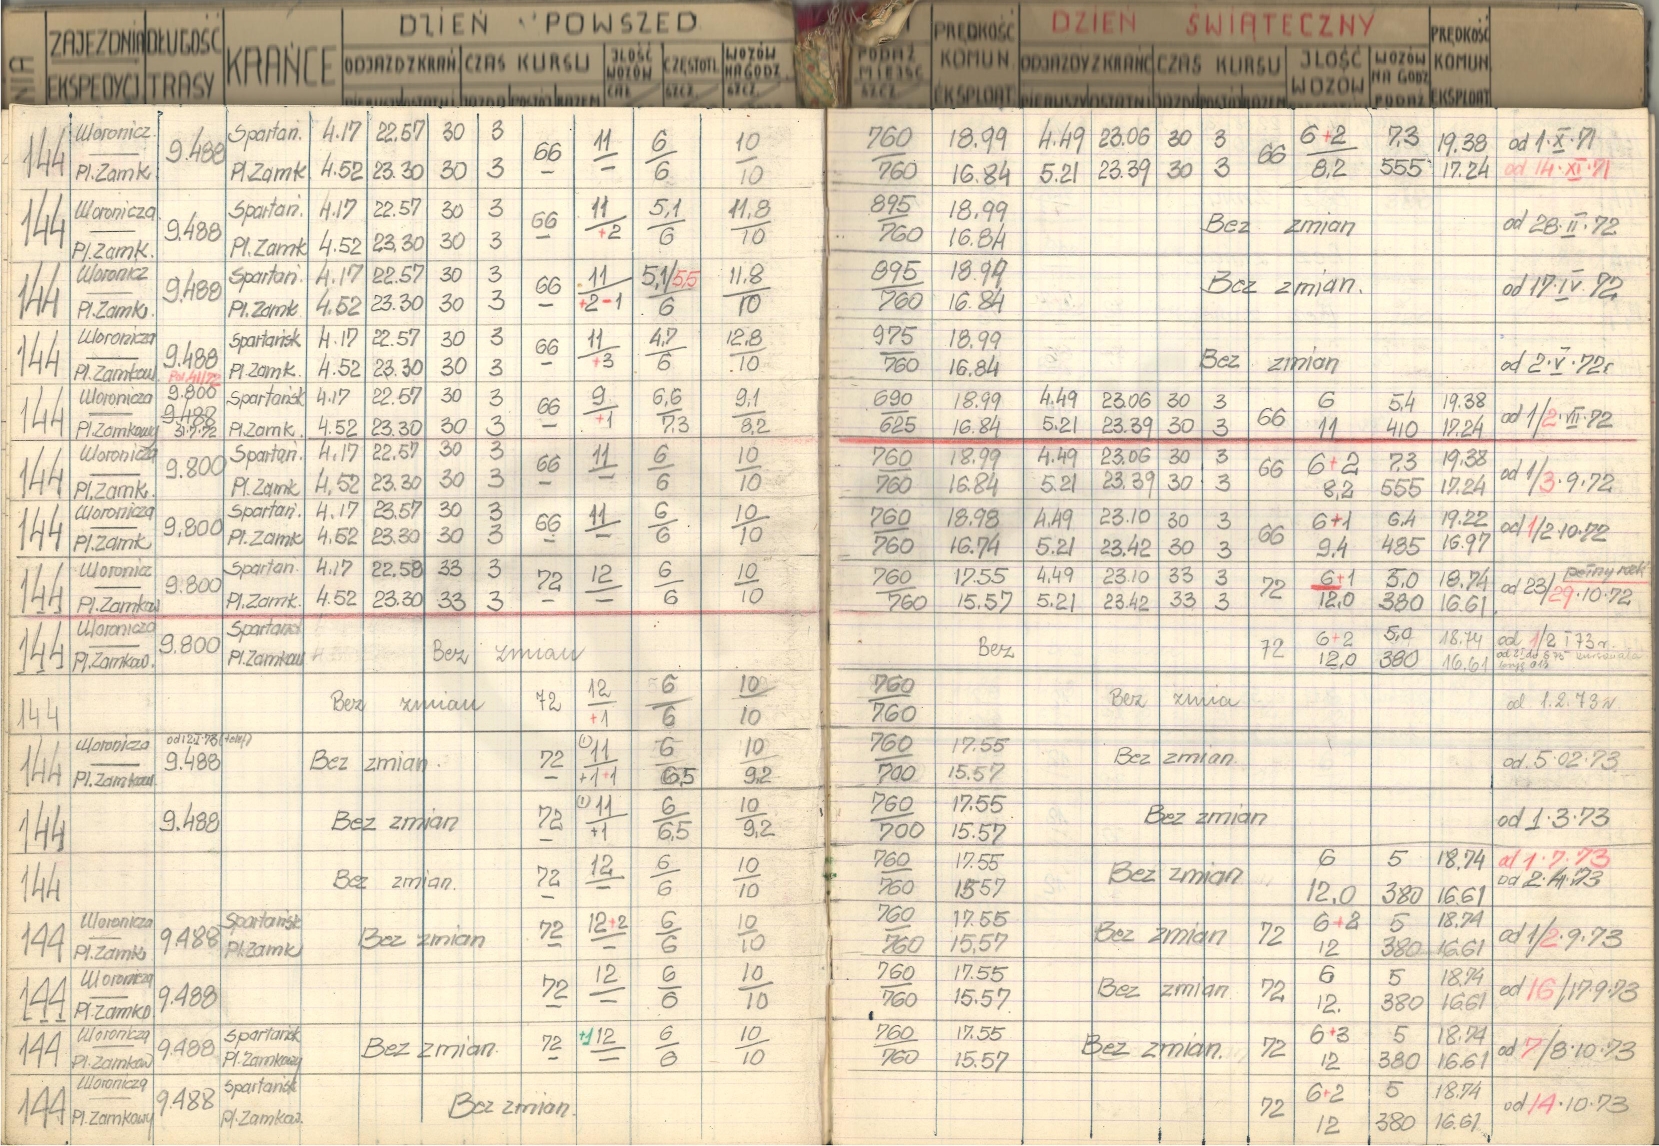 NIA ZAJEZDNIA DŁUGOŚĆ KRAŃCE DZIEŃ POWSZED. PODAŻ PRĘDKOŚĆ DZIEŃ ŚWIĄTECZNY PRĘDKOŚĆ
EKSPEDYCJ TRASY ODJAZDZKRAŃ CZAS KURSU ILOŚĆ WOZÓW CAŁ. CZĘSTOTL. SZCZ. WOZÓW NA GODZ. SZCZ. MIEJSC SZCZ. KOMUN EKSPLOAT ODJAZDY Z KRAŃC CZAS KURSU ILOŚĆ WOZÓW WOZÓW NA GODZ PODAŻ KOMUN EKSPLOAT
PIERWSZY OSTATNI JAZDA POSTÓJ RAZEM PIERWSZY OSTATNI JAZDA POSTÓJ RAZEM
144 Woronicz. 9.488 Spartań. 4.17 22.57 30 3 66 11 6 10 760 18.99 4.49 23.06 30 3 66 6+2 7,3 19.38 od 1·X·71
Pl.Zamk. Pl.Zamk 4.52 23.30 30 3 – – 6 10 760 16.84 5.21 23.39 30 3 8,2 555 17.24 od 14·XI·71
144 Woronicza 9.488 Spartań. 4.17 22.57 30 3 66 11 5,1 11,8 895 18.99 Bez zmian od 28·II·72
Pl.Zamk. Pl.Zamk 4.52 23.30 30 3 – +2 6 10 760 16.84
144 Woronicz 9.488 Spartań. 4.17 22.57 30 3 66 11 5,1/5,5 11,8 895 18.99 Bez zmian. od 17·IV·72
Pl.Zamk. Pl.Zamk 4.52 23.30 30 3 – +2-1 6 10 760 16.84
144 Woronicza 9.488 Spartańsk 4.17 22.57 30 3 66 11 4,7 12,8 975 18.99 Bez zmian od 2·V·72r
Pl.Zamkow. Pl.Zamk. 4.52 23.30 30 3 – +3 6 10 760 16.84
144 Woronicza 9.800 Spartańsk 4.17 22.57 30 3 66 9 6,6 9,1 690 18.99 4.49 23.06 30 3 66 6 5,4 19.38 od 1/2·VII·72
Pl.Zamkowy 9.488 31.7.72 Pl.Zamk. 4.52 23.30 30 3 – +1 7,3 8,2 625 16.84 5.21 23.39 30 3 11 410 17.24
144 Woronicza 9.800 Spartań. 4.17 22.57 30 3 66 11 6 10 760 18.99 4.49 23.06 30 3 66 6+2 7,3 19.38 od 1/3·9·72
Pl.Zamk. Pl.Zamk 4.52 23.30 30 3 – – 6 10 760 16.84 5.21 23.39 30 3 8,2 555 17.24
144 Woronicza 9.800 Spartań. 4.17 23.57 30 3 66 11 6 10 760 18.98 4.49 23.10 30 3 66 6+1 6,4 19.22 od 1/2·10·72
Pl.Zamk Pl.Zamk 4.52 23.30 30 3 – – 6 10 760 16.74 5.21 23.42 30 3 9,4 485 16.97
144 Woronicz 9.800 Spartań. 4.17 22.58 33 3 72 12 6 10 760 17.55 4.49 23.10 33 3 72 6+1 5,0 18.74 od 23/29·10·72 pełny rok
Pl.Zamkow Pl.Zamk. 4.52 23.30 33 3 – – 6 10 760 15.57 5.21 23.42 33 3 12,0 380 16.61
144 Woronicza 9.800 Spartańs Bez zmian Bez 72 6+2 5,0 18.74 od 1/2 I 73 r.
Pl.Zamkow. Pl.Zamkow 12,0 380 16.61
144 Bez zmian 72 12 6 10 760 Bez zmia od 1.2.73 r
+1 6 10 760
144 Woronicza 9.488 Bez zmian. 72 (1)11 6 10 760 17.55 Bez zmian. od.5·02·73
Pl.Zamkow. – +1+1 6,5 9,2 700 15.57
144 9.488 Bez zmian 72 (1)11 6 10 760 17.55 Bez zmian od 1·3·73
– +1 6,5 9,2 700 15.57
144 Bez zmian. 72 12 6 10 760 17.55 Bez zmian 6 5 18.74 od 1·7·73
– – 6 10 760 15.57 12,0 380 16.61 od 2·4·73
144 Woronicza 9.488 Spartańsk Bez zmian 72 12+2 6 10 760 17.55 Bez zmian 72 6+2 5 18.74 od 1/2·9·73
Pl.Zamk. Pl.Zamk – – 6 10 760 15.57 12 380 16.61
144 Woronicza 9.488 72 12 6 10 760 17.55 Bez zmian. 72 6 5 18.74 od 16/17·9·73
Pl.Zamko – – 6 10 760 15.57 12. 380 16.61
144 Woronicza 9.488 Spartańsk Bez zmian. 72 +1 12 6 10 760 17.55 Bez zmian. 72 6+3 5 18.74 od 7/8·10·73
Pl.Zamkow Pl.Zamkowy – – 6 10 760 15.57 12 380 16.61
144 Woronicza 9.488 Spartańsk Bez zmian. 72 6+2 5 18.74 od 14·10·73
Pl.Zamkowy Pl.Zamkow. 12 380 16.61